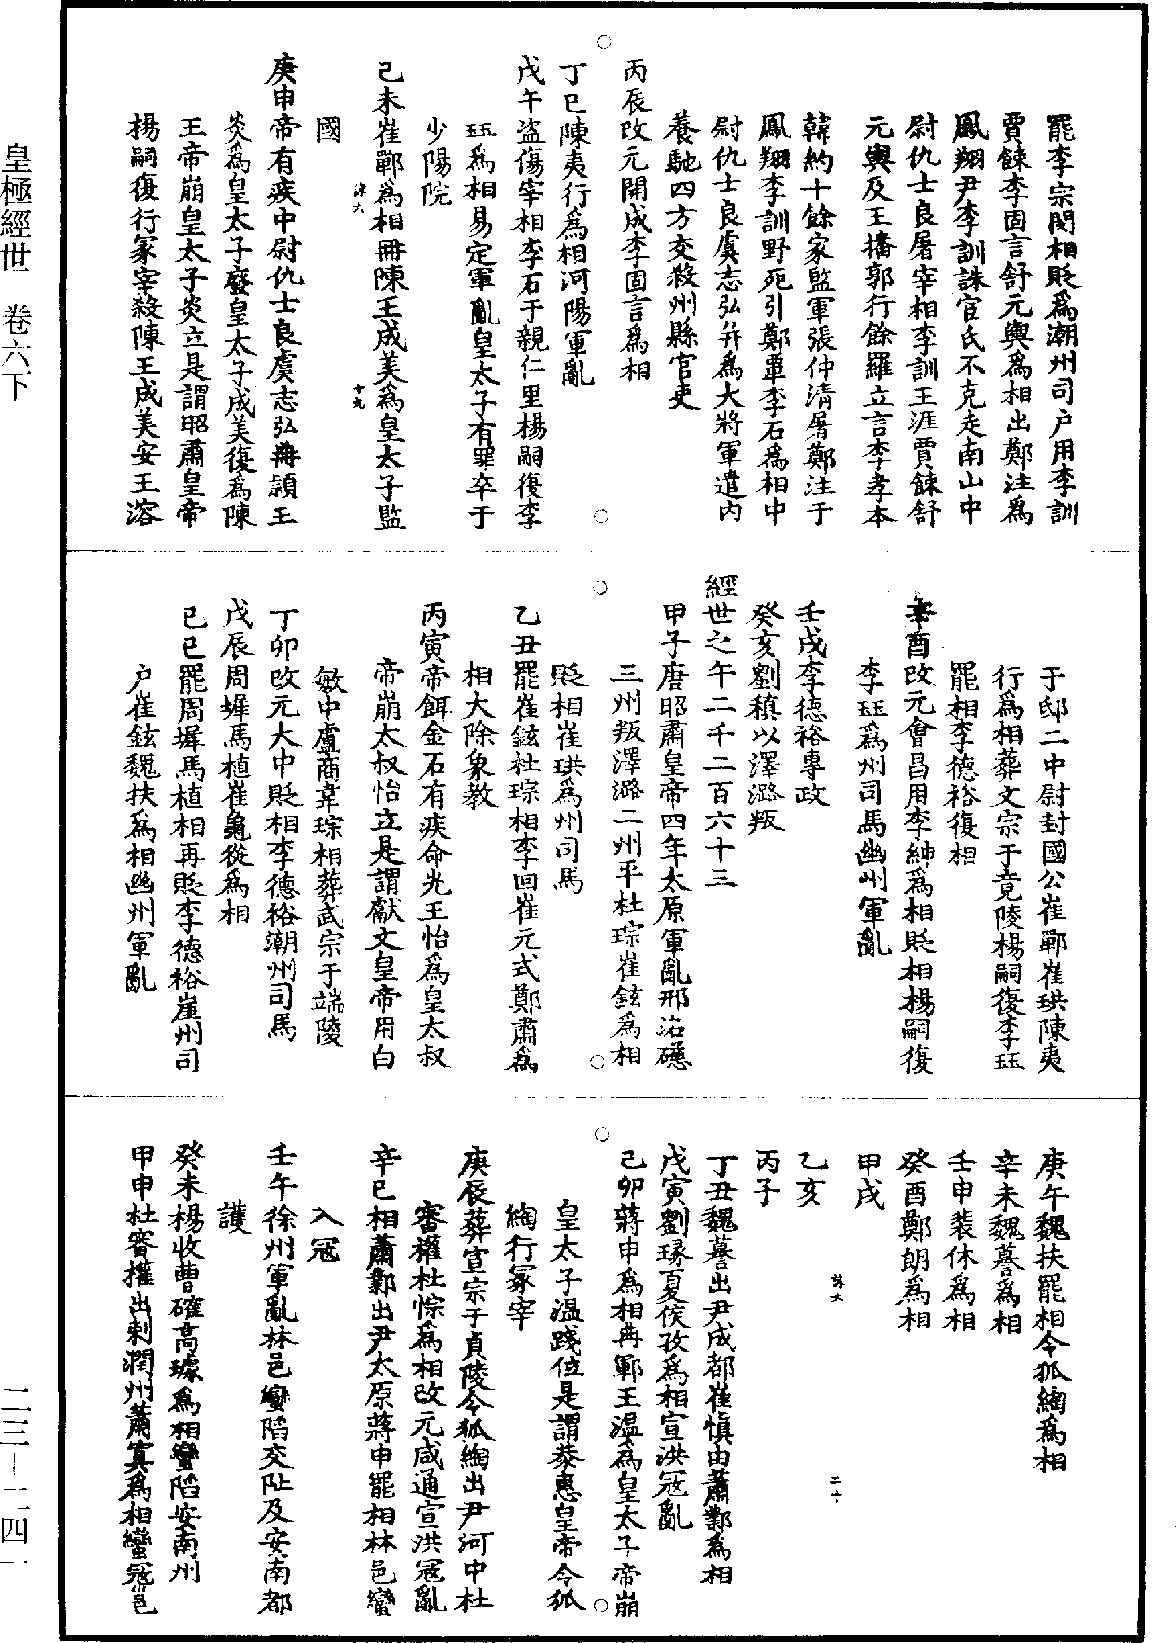 皇極經世　卷六下
罷李宗閔相貶爲潮州司户用李訓
賈餗李固言舒元輿爲相出鄭注爲
鳳翔尹李訓誅宦氏不克走南山中
尉仇士良屠宰相李訓王涯賈餗舒
元輿及王播郭行餘羅立言李孝本
韓約十餘家監軍張仲清屠鄭注于
鳳翔李訓野死引鄭覃李石爲相中
尉仇士良虞志弘并爲大將軍遣内
養馳四方交殺州縣官吏
丙辰改元開成李固言爲相
丁巳陳夷行爲相河陽軍亂
戊午盗傷宰相李石于親仁里楊嗣復李
珏爲相易定軍亂皇太子有罪卒于
少陽院
己未崔鄲爲相冊陳王成美爲皇太子監
國
庚申帝有疾中尉仇士良虞志弘冊潁王
炎爲皇太子廢皇太子成美復爲陳
王帝崩皇太子炎立是謂昭肅皇帝
楊嗣復行冢宰殺陳王成美安王溶
于邸二中尉封國公崔鄲崔珙陳夷
行爲相葬文宗于章陵楊嗣復李珏
罷相李德裕復相
辛酉改元會昌用李紳爲相貶相楊嗣復
李珏爲州司馬幽州軍亂
壬戌李德裕專政
癸亥劉稹以澤潞叛
經世之午二千二百六十三
甲子唐昭肅皇帝四年太原軍亂邢洺磁
三州叛澤潞二州平杜琮崔鉉爲相
貶相崔珙爲州司馬
乙丑罷崔鉉杜琮相李回崔元式鄭肅爲
相大除象教
丙寅帝餌金石有疾命光王怡爲皇太叔
帝崩太叔怡立是謂獻文皇帝用白
敏中盧商韋琮相葬武宗于端陵
丁卯改元大中貶相李德裕潮州司馬
戊辰周墀馬植崔龜從爲相
己巳罷周墀馬植相再貶李德裕崖州司
户崔鉉魏扶爲相幽州軍亂
庚午魏扶罷相令狐綯爲相
辛未魏謩爲相
壬申裴休爲相
癸酉鄭朗爲相
甲戌
乙亥
丙子
丁丑魏謩出尹成都崔慎由蕭鄴爲相
戊寅劉瑑夏侯孜爲相宣洪寇亂
己卯蔣申爲相冉鄆王温爲皇太子帝崩
皇太子温踐位是謂恭惠皇帝令狐
綯行冢宰
庚辰葬宣宗于貞陵令狐綯出尹河中杜
審權杜悰爲相改元咸通宣洪寇亂
辛巳相蕭鄴出尹太原蔣申罷相林邑蠻
入寇
壬午徐州軍亂林邑蠻陷交阯及安南都
護
癸未楊收曹確高璩爲相蠻陷安南州
甲申杜審權出刺潤州蕭寘爲相蠻寇邕
二三—二四一